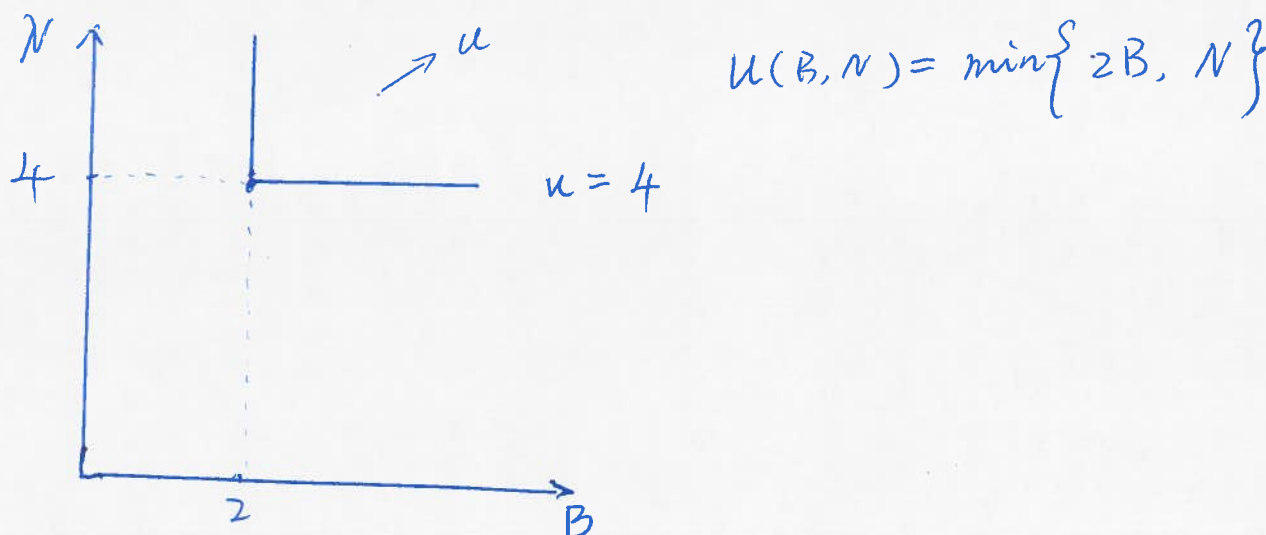 N
u
U(B,N) = min{ 2B, N }
4
u = 4
2
B